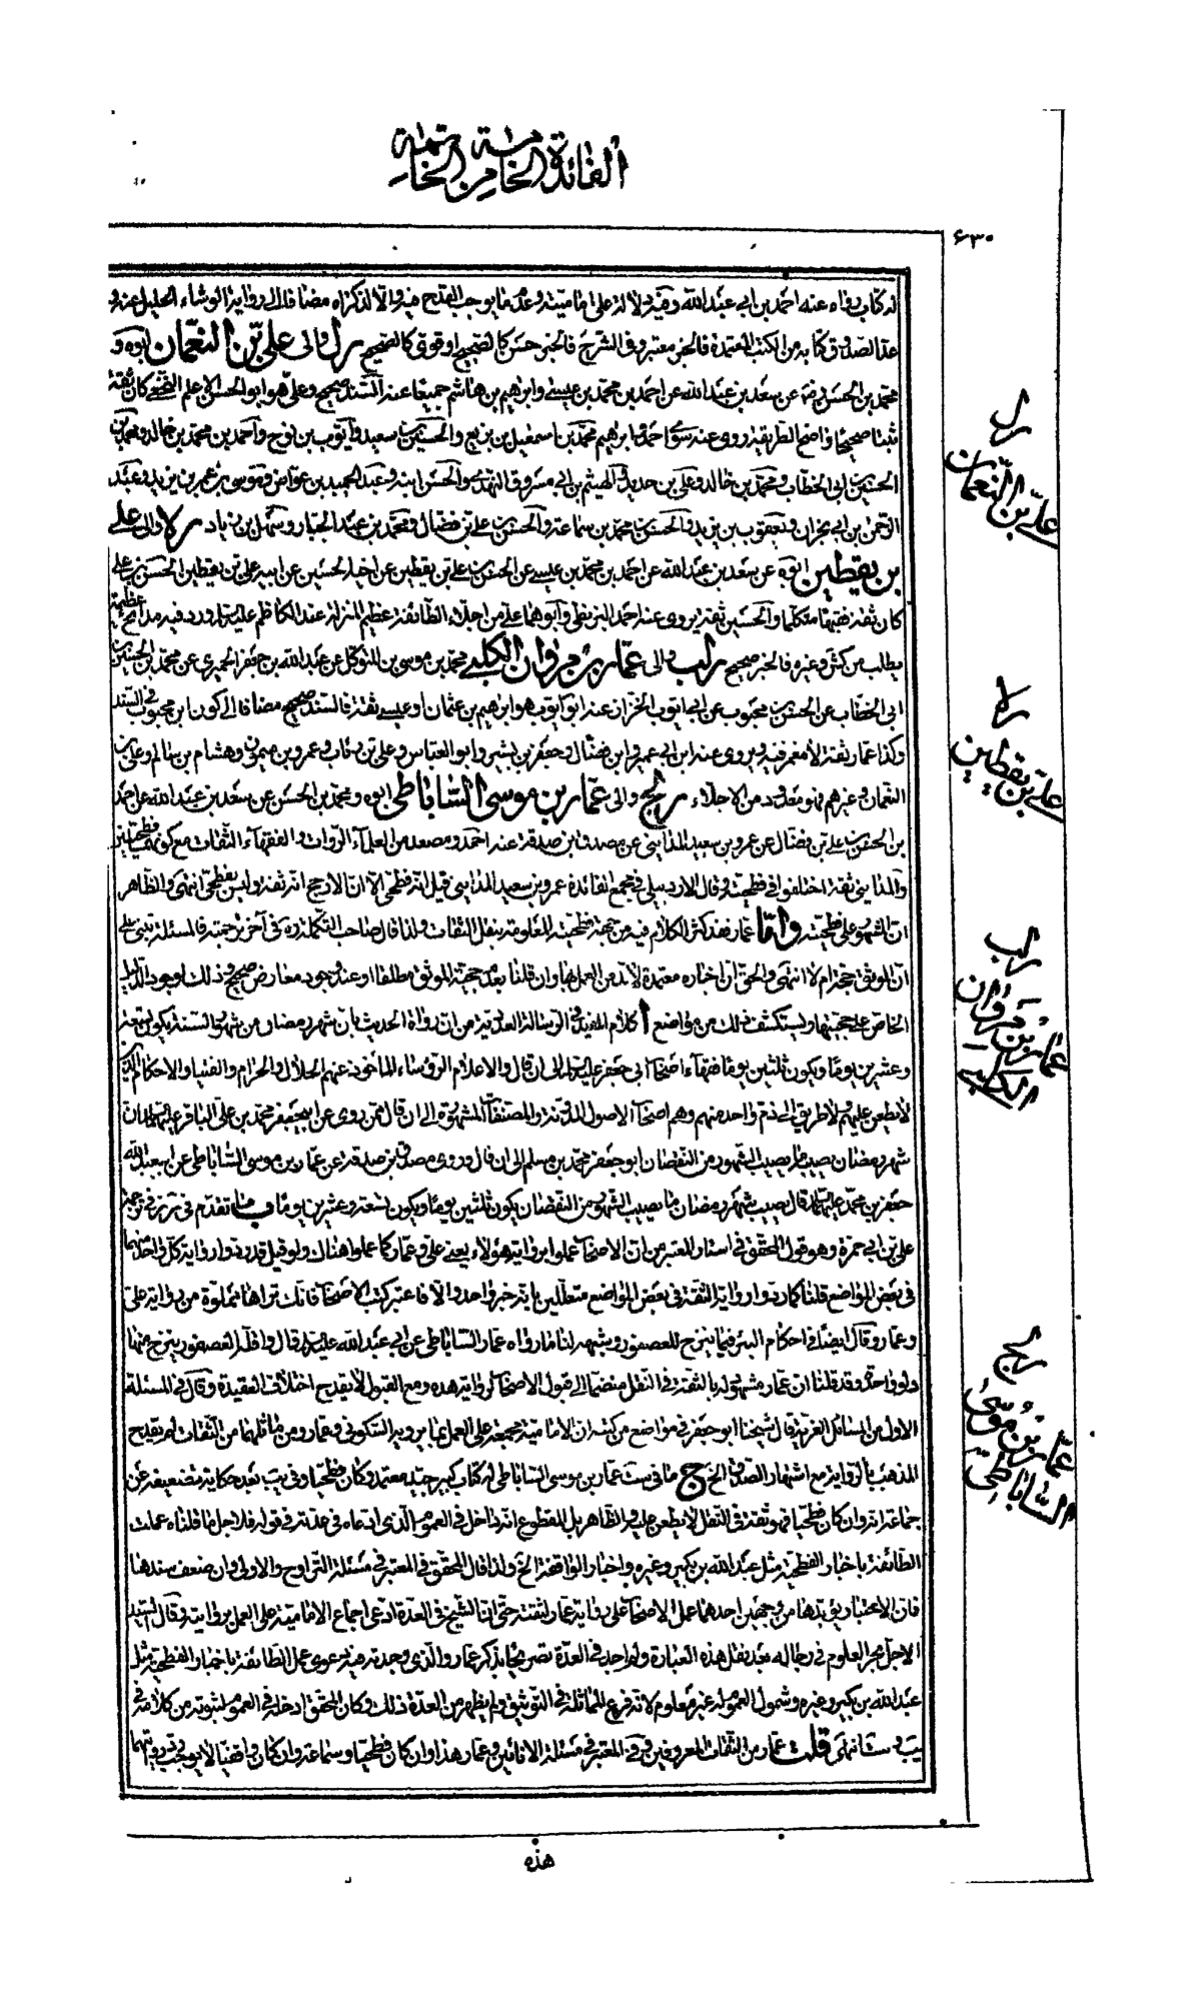 الفائدة الخامسة من الخاتمة
۶۳۰
له كتاب رواه عنه احمد بن ابي عبد الله وفيه دلالة على اماميته وعدم ما يوجب القدح فيه والا لذكراه مضافا الى رواية الوشاء الجليل عنه و
عد الصدوق كتابه من الكتب المعتمدة فالخبر معتبر وفى الشرح فالخبر حسن كالصحيح او قوى كالصحيح رل والى على بن النعمان ابوه و
محمد بن الحسن رض عن سعد بن عبد الله عن احمد بن محمد بن عيسى وابراهيم بن هاشم جميعا عنه السند صحيح وعلى هو ابو الحسن الاعلم النخعي كان ثقة
ثبتا صحيحا واضح الطريقة روى عنه سوى احمد وابراهيم محمد بن اسمعيل بن بزيع والحسين بن سعيد وايوب بن نوح واحمد بن محمد بن خالد ومحمد بن
الحسين بن ابى الخطاب ومحمد بن خالد وعلى بن حديد والهيثم بن ابي مسروق النهدى والحسن ابنه وعبد الحميد بن عواض وموسى بن عمر بن يزيد وعبد
الرحمن بن ابي نجران ويعقوب بن يزيد والحسن بن محمد بن سماعة والحسن بن على بن فضال ومحمد بن عبد الجبار وسهل بن زياد رلا والى على
بن يقطين ابوه عن سعد بن عبد الله عن احمد بن محمد بن عيسى عن الحسن بن على بن يقطين عن اخيه الحسين عن ابيه على بن يقطين الحسن بن على
كان ثقة فقيها متكلما والحسين ثقة يروى عنه احمد البزنطى وابوهما على من اجلاء الطائفة عظيم المنزلة عند الكاظم عليه السلام ورد فيه مدائح عظيمة
يطلب من كش وغيره فالخبر صحيح رلب والى عمار بن مروان الكلبى محمد بن موسى بن المتوكل عن عبد الله بن جعفر الحميرى عن محمد بن الحسين بن
ابى الخطاب عن الحسن بن محبوب عن ابى ايوب الخزاز عنه ابو ايوب هو ابراهيم بن عثمان او عيسى ثقة فالسند صحيح مضافا الى كون ابن محبوب فى السند
وكذا عمار ثقة لا مغمز فيه ويروى عنه ابن ابى عمير وابن فضال وجعفر بن بشير وابو العباس وعلى بن رئاب وعمرو بن ميمون وهشام بن سالم وعلى بن
النعمان وغيرهم فهو معدود من الاجلاء رلج والى عمار بن موسى الساباطى ابوه ومحمد بن الحسن عن سعد بن عبد الله عن احمد
بن الحسن بن على بن فضال عن عمرو بن سعيد المدائنى عن مصدق بن صدقة عنه احمد ومصدق من العلماء الروات والفقهاء الثقات مع كونهما فطحيين
والمدائنى ثقة اختلفوا فى فطحيته وقال الاردبيلى فى مجمع الفائدة عمرو بن سعيد المدائنى قيل انه فطحى الا ان الارجح انه ثقة وليس بفطحى انتهى والظاهر
ان المشهور على فطحيته واما عمار فقد كثر الكلام فيه من جهة فطحيته المعلومة بنقل الثقات ولذا قال صاحب التكملة ره فى آخر ترجمته فالمسئلة تبتنى على
ان الموثق حجة ام لا انتهى والحق ان اخباره معتمدة لابد من العمل بها وان قلنا بعدم حجية الموثق مطلقا او عند وجود معارض صحيح وذلك لوجود الدليل
الخاص على حجيتها ويستكشف ذلك من مواضع ا كلام المفيد فى الرسالة العددية من ان رواة الحديث بان شهر رمضان من شهور السنة يكون تسعة
وعشرين يوما ويكون ثلثين يوما فقهاء اصحاب ابى جعفر عليه السلام الى ان قال والاعلام الرؤساء الماخوذ عنهم الحلال والحرام والفتيا والاحكام الذين
لا يطعن عليهم ولا طريق الى ذم واحد منهم وهم اصحاب الاصول المدونة والمصنفات المشهورة الى ان قال فمن روى عن ابيجعفر محمد بن على الباقر عليهما السلام ان
شهر رمضان يصيبه ما يصيب الشهور من النقصان ابو جعفر محمد بن مسلم الى ان قال وروى مصدق بن صدقة عن عمار بن موسى الساباطى عن ابيعبد الله
جعفر بن محمد عليهما السلام قال يصيب شهر رمضان ما يصيب الشهور من النقصان يكون ثلثين يوما ويكون تسعة وعشرين يوما ب ما تقدم فى ترجمة
على بن ابى حمزة وهو قول المحقق فى اسئار المعتبر من ان الاصحاب عملوا برواية هؤلاء يعنى على وعمار كما عملوا هناك ولو قيل قد ردوا رواية كل واحد منهما
فى بعض المواضع قلنا كما ردوا رواية الثقة فى بعض المواضع متعللين بانه خبر واحد والا فاعتبر كتب الاصحاب فانك تراها مملوة من رواية على
وعمار وقال ايضا فى احكام البئر فيما ينزح للعصفور ويشهد لنا ما رواه عمار الساباطى عن ابى عبد الله عليه السلام قال واقله العصفور ينزح منها
دلو واحد وقد قلنا ان عمار مشهود له بالثقة فى النقل منضما الى قبول الاصحاب لروايته هذه ومع القبول لا يقدح اختلاف العقيدة وقال فى المسئلة
الاولى من المسائل الغرية قال شيخنا ابو جعفر فى مواضع من كتبه ان الامامية مجمعة على العمل بما يرويه السكونى وعمار ومن ماثلهما من الثقات لم يقدح
المذهب بالرواية مع اشتهار الصدق الخ ج ما فى ست عمار بن موسى الساباطى له كتاب كبير جيد معتمد وكان فطحيا وفى يب بعد حكاية تضعيفه عن
جماعة انه وان كان فطحيا فهو ثقة فى النقل لا يطعن عليه فيه والظاهر بل المقطوع انه داخل فى العموم الذى ادعاه فى عدته فى قوله فلاجل ما قلناه عملت
الطائفة باخبار الفطحية مثل عبد الله بن بكير وغيره واخبار الواقفة الخ ولذا قال المحقق فى المعتبر فى مسئلة التراوح والاولى وان ضعف سندها
فان الاعتبار يؤيدها من وجهين احدهما عمل الاصحاب على رواية عمار لثقته حتى ان الشيخ فى العدة ادعى اجماع الامامية على العمل بروايته وقال السيد
الاجل بحر العلوم فى رجاله بعد نقل هذه العبارة ولم اجد فى العدة تصريحا بذكر عمار والذى وجدته فيه دعوى عمل الطائفة باخبار الفطحية مثل
عبد الله بن بكير وغيره وشمول العموم له غير معلوم لانه فرع المماثلة فى التوثيق ولم يظهر من العدة ذلك وكان المحقق ادخله فى العموم لثبوته من كلامه فى
يب و ست انتهى قلت عمار من الثقات المعروفين وفى المعتبر فى مسئلة الانائين وعمار هذا وان كان فطحيا وسماعة وان كان واقفيا لا يوجب رد روايتهما
هذه
رل
على بن النعمان
رلا
على بن يقطين
رلب
عمار بن مروان
الكلبى
رلج
عمار بن موسى
الساباطى